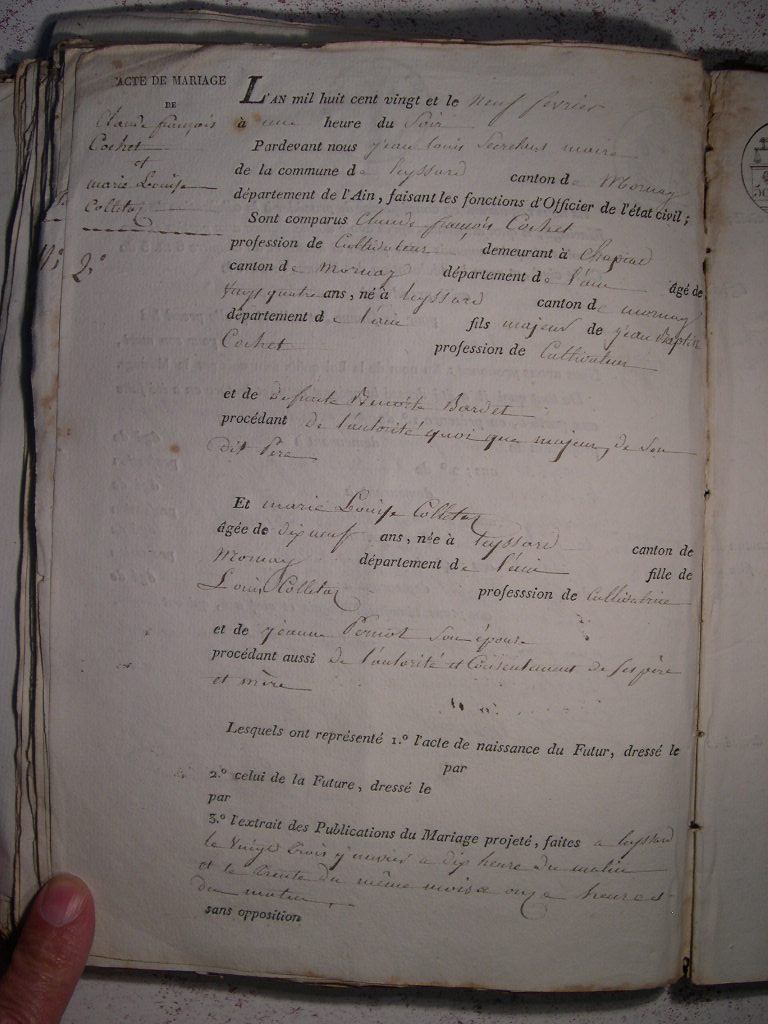 ACTE DE MARIAGE
DE
Claude françois
Cochet
et
marie Louise
Colletaz
2.º
L'AN mil huit cent vingt et le neuf fevrier
à une heure du Soir
Pardevant nous jean louis Secretan maire
de la commune de leyssard canton de Mornay
département de l'Ain, faisant les fonctions d'Officier de l'état civil;
Sont comparus Claude françois Cochet
profession de Cultivateur demeurant à
canton de mornay département de l'ain âgé de
vingt quatre ans, né à leyssard canton de mornay
département de l'ain fils majeur de jean Baptiste
Cochet profession de Cultivateur
et de defunte Benoite Bardet
procédant de l'autorité quoi que majeur, de Son
dit Pere
Et marie Louise Colletaz
âgée de dix neuf ans, née à leyssard canton de
Mornay département de l'ain fille de
Louis Colletaz professsion de Cultivatrice
et de jeanne Pernot Son épouse
procédant aussi de l'autorité et Consentement de Ses père
et mère
Lesquels ont représenté 1.º l'acte de naissance du Futur, dressé le
par
2.º celui de la Future, dressé le
par
3.º l'extrait des Publications du Mariage projeté, faites a leyssard
le vingt trois janvier a dix heure du matin
et le trente du même mois a onze heures
du matin,
sans opposition